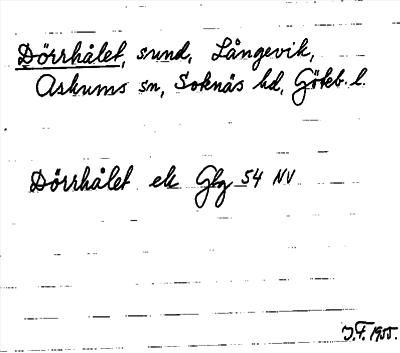 Dörrhålet, sund, Långevik,
Askums sn, Sotenäs hd, Göteb. l.
Dörrhålet ek Gbg 54 NV
J.F. 1955.